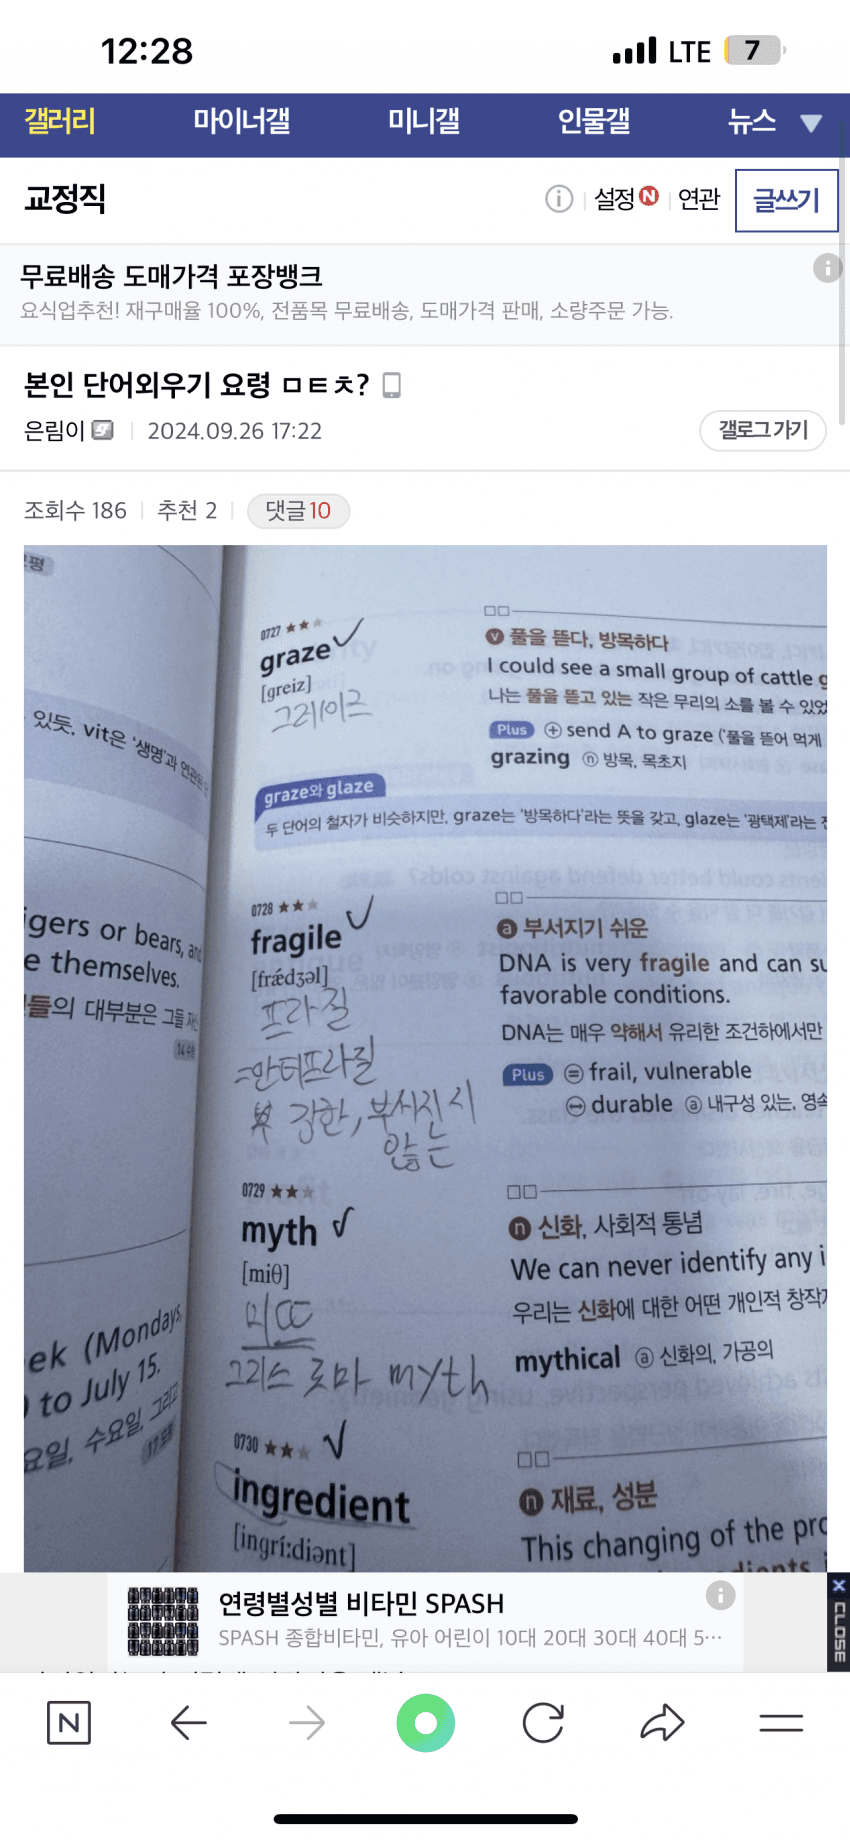 12:28
LTE 7
갤러리 마이너갤 미니갤 인물갤 뉴스
교정직
설정 N 연관 글쓰기
무료배송 도매가격 포장뱅크
요식업추천! 재구매율 100%, 전품목 무료배송, 도매가격 판매, 소량주문 가능.
본인 단어외우기 요령 ㅁㅌㅊ?
은림이 2024.09.26 17:22
갤로그 가기
조회수 186 추천 2 댓글 10
있듯, vit은 '생명'과
igers or bears, and
e themselves.
들의 대부분은 그들
ek (Mondays,
to July 15.
요일, 수요일, 그리고
0727
graze
[greiz]
그레이즈
ⓥ 풀을 뜯다, 방목하다
I could see a small group of cattle g
나는 풀을 뜯고 있는 작은 무리의 소를 볼 수 있었
Plus ⊕ send A to graze ('풀을 뜯어 먹게
grazing ⓝ 방목, 목초지
graze와 glaze
두 단어의 철자가 비슷하지만, graze는 '방목하다'라는 뜻을 갖고, glaze는 '광택제'라는
0728
fragile
[frǽdʒəl]
프라질
=안티프라질
강한, 부서진시
않는
ⓐ 부서지기 쉬운
DNA is very fragile and can su
favorable conditions.
DNA는 매우 약해서 유리한 조건하에서만
Plus ⊜ frail, vulnerable
↔ durable ⓐ 내구성 있는, 영속
0729
myth
[miθ]
미뜨
그리스 로마 myth
ⓝ 신화, 사회적 통념
We can never identify any i
우리는 신화에 대한 어떤 개인적 창작
mythical ⓐ 신화의, 가공의
0730
ingredient
[ingríːdiənt]
ⓝ 재료, 성분
This changing of the pro
연령별성별 비타민 SPASH
SPASH 종합비타민, 유아 어린이 10대 20대 30대 40대 5…
X CLOSE
N